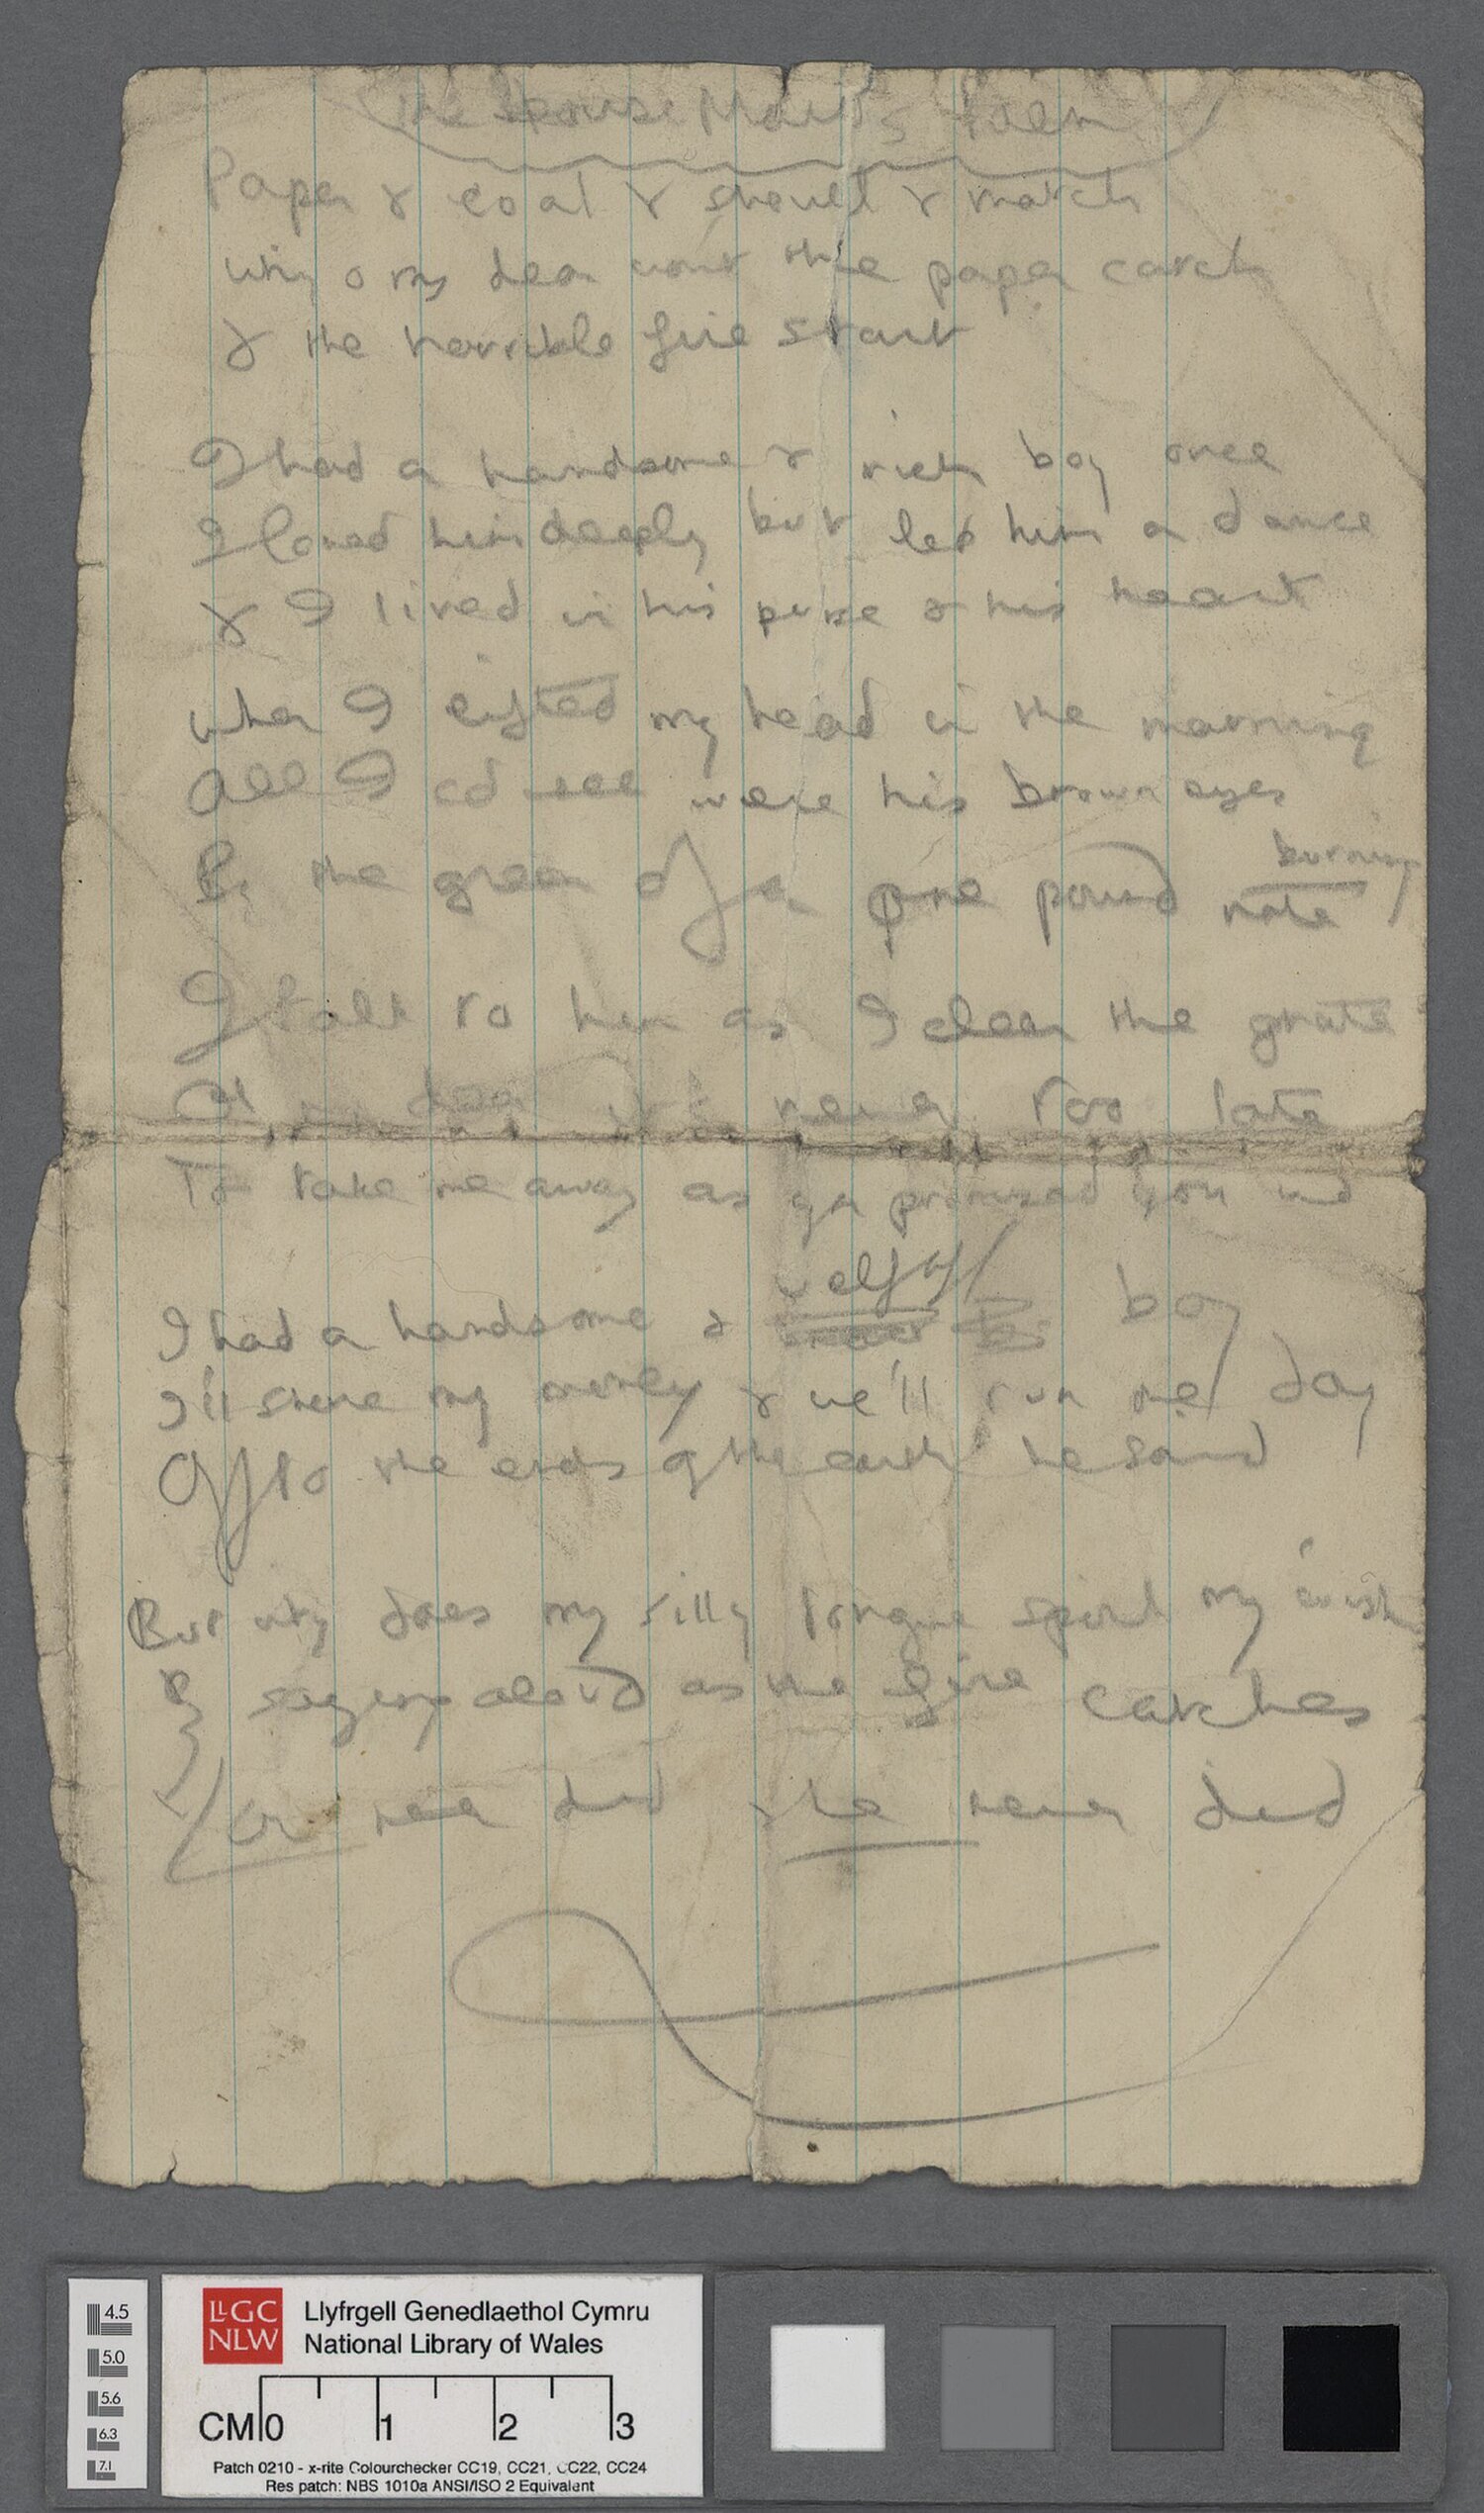 The House Maid's Poem
Paper & coal & shovel & match
why o my dear wont the paper catch
& the horrible fire start
I had a handsome & rich boy once
I loved him deeply but led him a dance
& I lived in his purse & his heart
when I lifted my head in the morning
All I cd see were his brown eyes
& the green of a one pound note
burning
I talk to him as I clean the grate
my dear it's never too late
To take me away as you promised you wd
I had a handsome & wealthy boy
I'll share my money & we'll run one day
Off to the ends of the earth he said
But why does my silly tongue my
& saying aloud as the fire catches
You never did & he never did
4.5
5.0
5.6
6.3
7.1
LLGC
NLW
Llyfrgell Genedlaethol Cymru
National Library of Wales
CM 0 1 2 3
Patch 0210 - x-rite Colourchecker CC19, CC21, CC22, CC24
Res patch: NBS 1010a ANSI/ISO 2 Equivalent